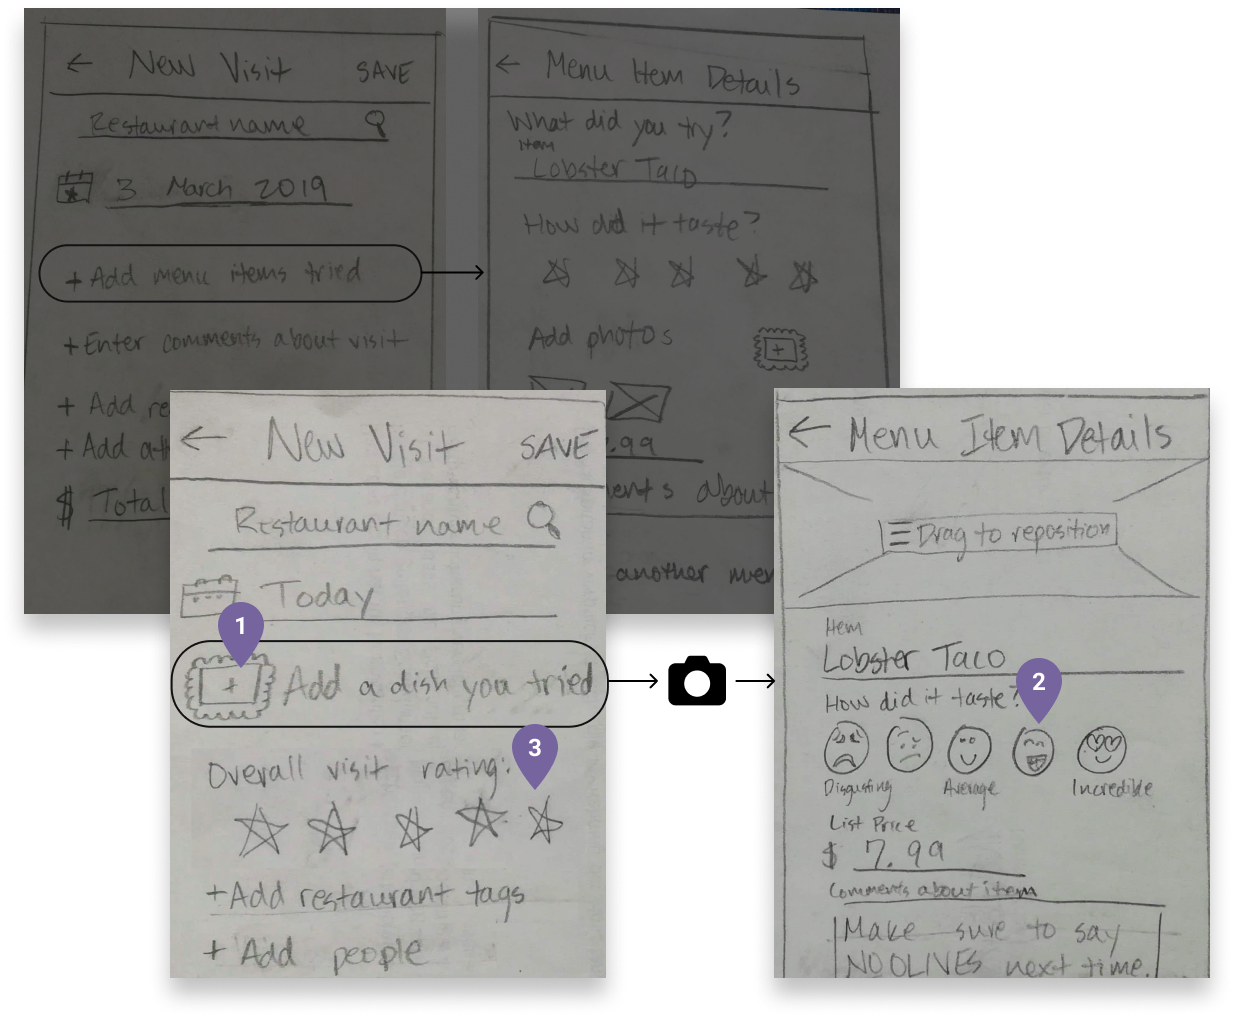 ← New Visit SAVE
Restaurant name
3 March 2019
+ Add menu items tried
+ Enter comments about visit
+ Add re
+ Add
$ Total
← Menu Item Details
What did you try?
item
Lobster Taco
How did it taste?
Add photos
+
.99
ents about
another mer
← New Visit SAVE
Restaurant name
Today
1
+ Add a dish you tried
Overall visit rating:
3
+ Add restaurant tags
+ Add people
← Menu Item Details
Drag to reposition
Item
Lobster Taco
How did it taste?
2
Disgusting Average Incredible
List Price
$ 7.99
Comments about item
Make sure to say
NO OLIVES next time.